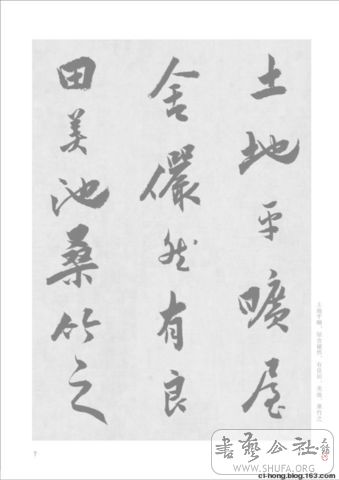 土地平曠屋
舍儼然有良
田美池桑竹之
土地平曠，屋舍儼然，有良田、美池、桑竹之
7
書藝公社
WWW.SHUFA.ORG
ci-hong.blog.163.com